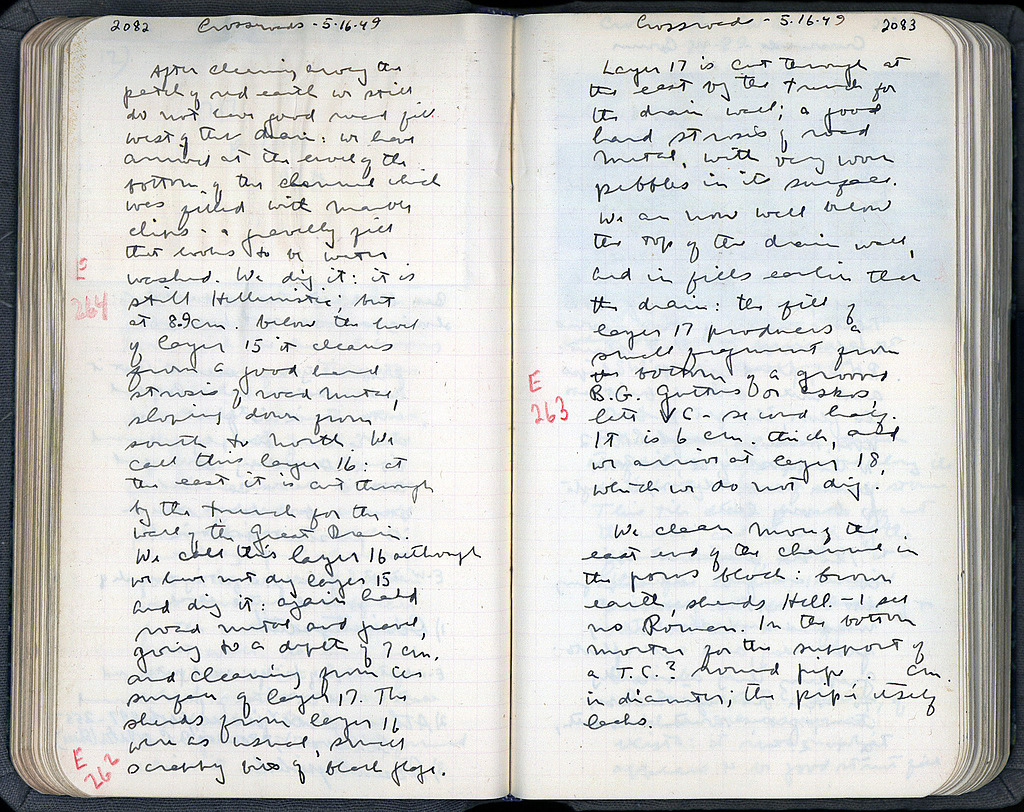 2082 Crossroads - 5.16.49
After cleaning away the
patch of red earth we still
do not have good road fill
west of the drain: we have
arrived at the level of the
bottom of the channel which
was filled with marble
chips - a gravelly fill
that looks to be water
washed. We dig it: it is
E
264
still Hellenistic; but
at 8.9cm. below the level
of layer 15 it cleans
from a good hard
strosis of road metal,
sloping down from
south to north. We
call this layer 16: at
the east it is cut through
by the trench for the
wall of the Great Drain.
We call this layer 16 although
we have not dug layer 15
and dig it: again hard
road metal and gravel,
going to a depth of 7 cm.
and cleaning from the
surface of layer 17. The
sherds from layer 16
were as usual, small
E
262
scrappy bits of black glaze.
Crossroads - 5.16.49 2083
Layer 17 is cut through at
the east by the trench for
the drain wall; a good
hard strosis of road
metal, with very worn
pebbles in its surface.
We are now well below
the top of the drain wall,
and in fills earlier than
the drain: the fill of
layer 17 produces a
small fragment from
E
263
bottom of a grooved
B.G. Guttus or askos,
late V C - second half.
It is 6 cm. thick, and
we arrive at layer 18,
which we do not dig.
We clean the
east end of the channel in
the poros block: brown
earth, sherds Hell. - I see
no Roman. In the bottom
mortar for the support of
a T.C.? round pipe . cm.
in diameter; the pipe itself
lacks.